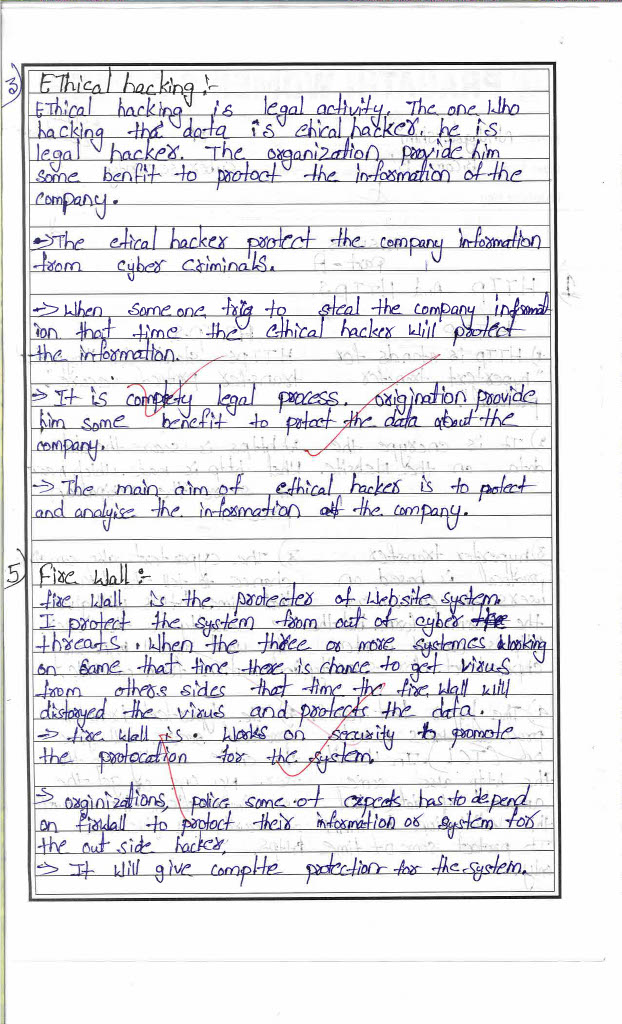 3) EThical hacking :-
EThical hacking is legal activity. The one who
hacking tha data is ehical hacker. he is
legal hacker. The organization provide him
some benfit to protoct the information of the
company.
→The etical hacker protect the company information
from cyber criminals.
→ When some one trig to steal the company informat
ion that time the ethical hacker will protect
the information.
→ It is complety legal process. origination provide
him some benefit to potact the data about the
company.
→ The main aim of ethical hacker is to protect
and analyise the information of the company.
5) Fire Wall :-
fire wall is the protecter of website system.
I protect the system from out of cyber
threats. When the three or more systemes working
on same that time there is chance to get virus
from others sides that time the fire wall will
distoryed the virus and protects the data.
→ fire wall is. works on security to promote
the protocation for the system.
→ orginizations, police some of expects has to depend
on firwall to protoct their information or system for
the out side hacker.
→ It will give complte protection for the system.